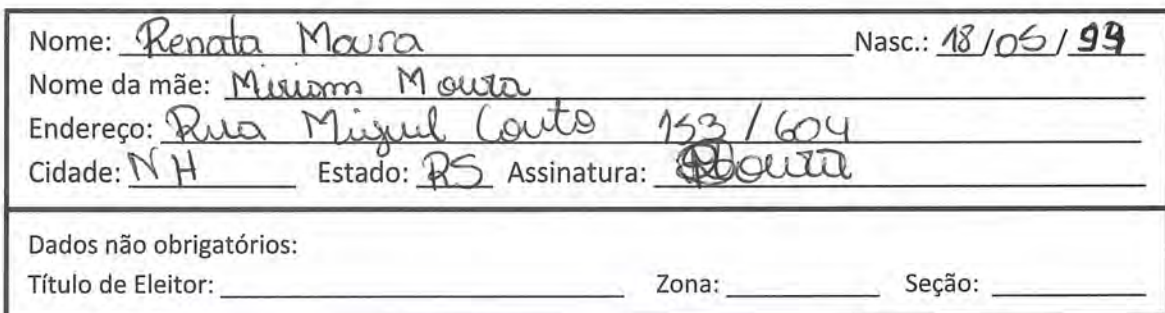 Nome: Renata Moura Nasc.: 18/05/99
Nome da mãe: Miriam Moura
Endereço: Rua Miguel Couto 153/604
Cidade: NH Estado: RS Assinatura: RMoura
Dados não obrigatórios:
Título de Eleitor: Zona: Seção: